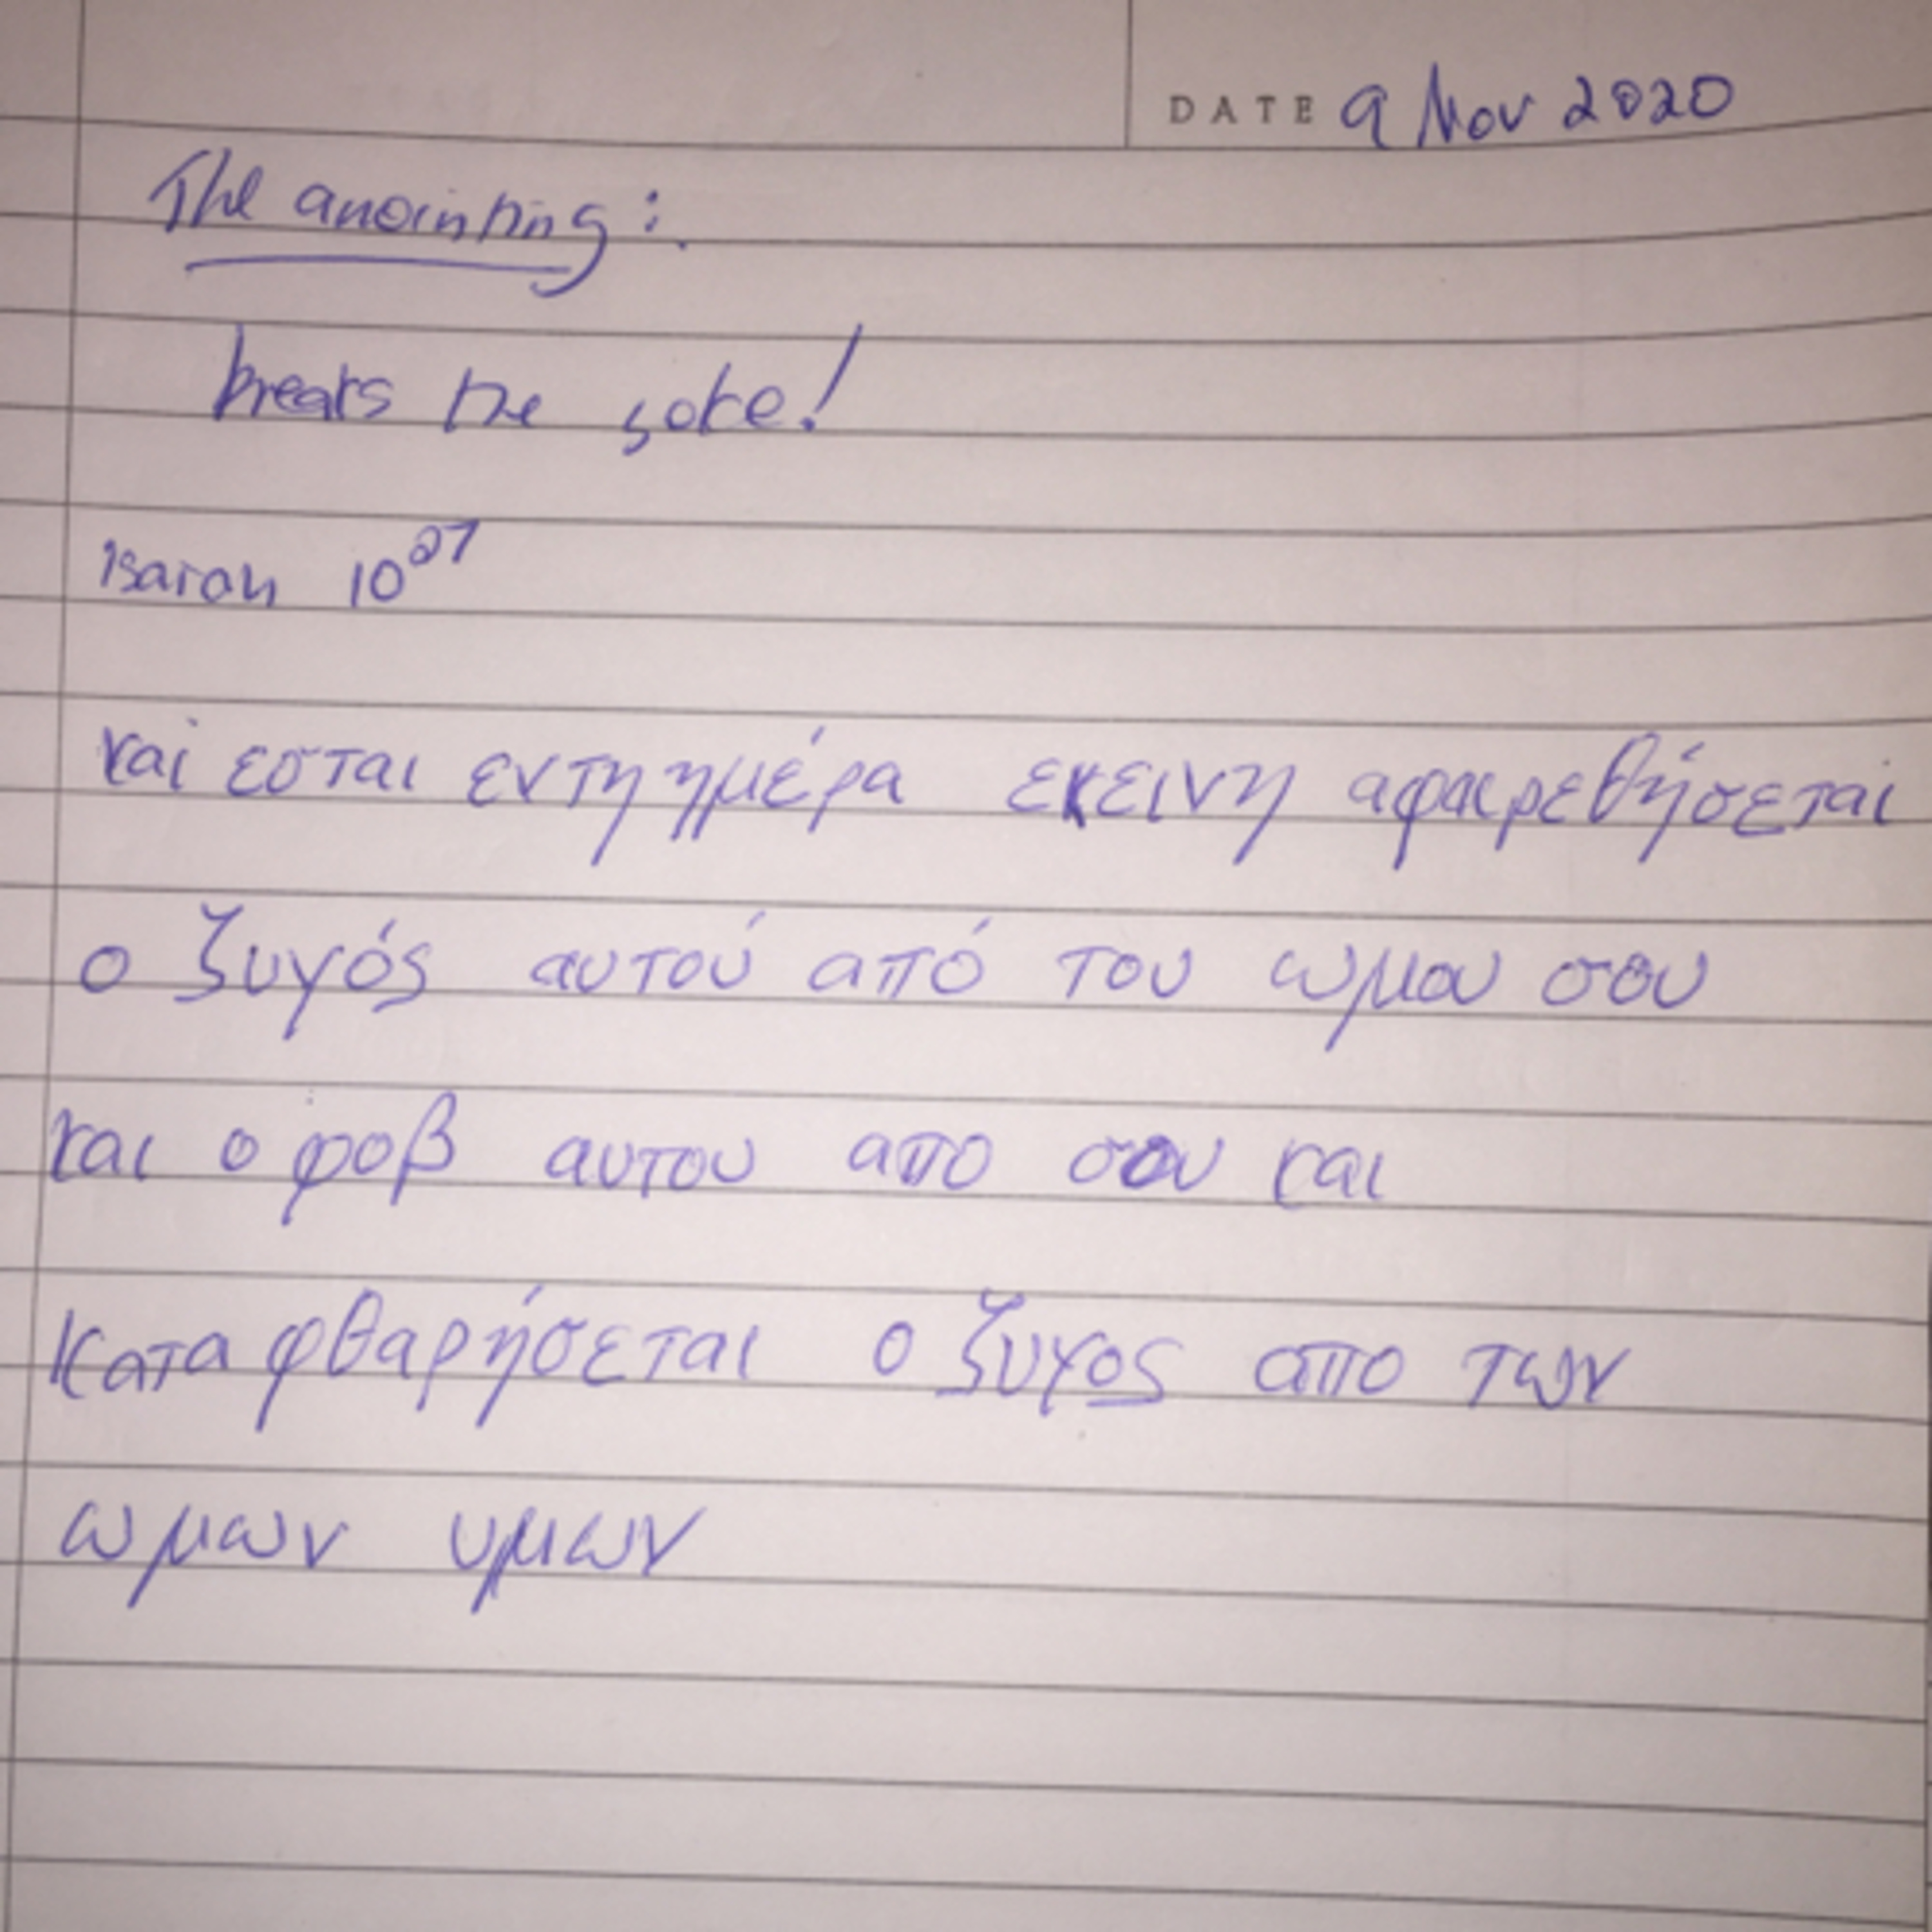 DATE 9 Nov 2020
The anointing:.
breaks the yoke!
Isaiah 10 27
καί εσται εντη ημέρα εκεινη αφαιρεθήσεται
ο ζυγός αυτού από του ωμου σου
και ο φοβ αυτου απο σου και
κατα φθαρήσεται ο ζυγος απο των
ωμων υμων